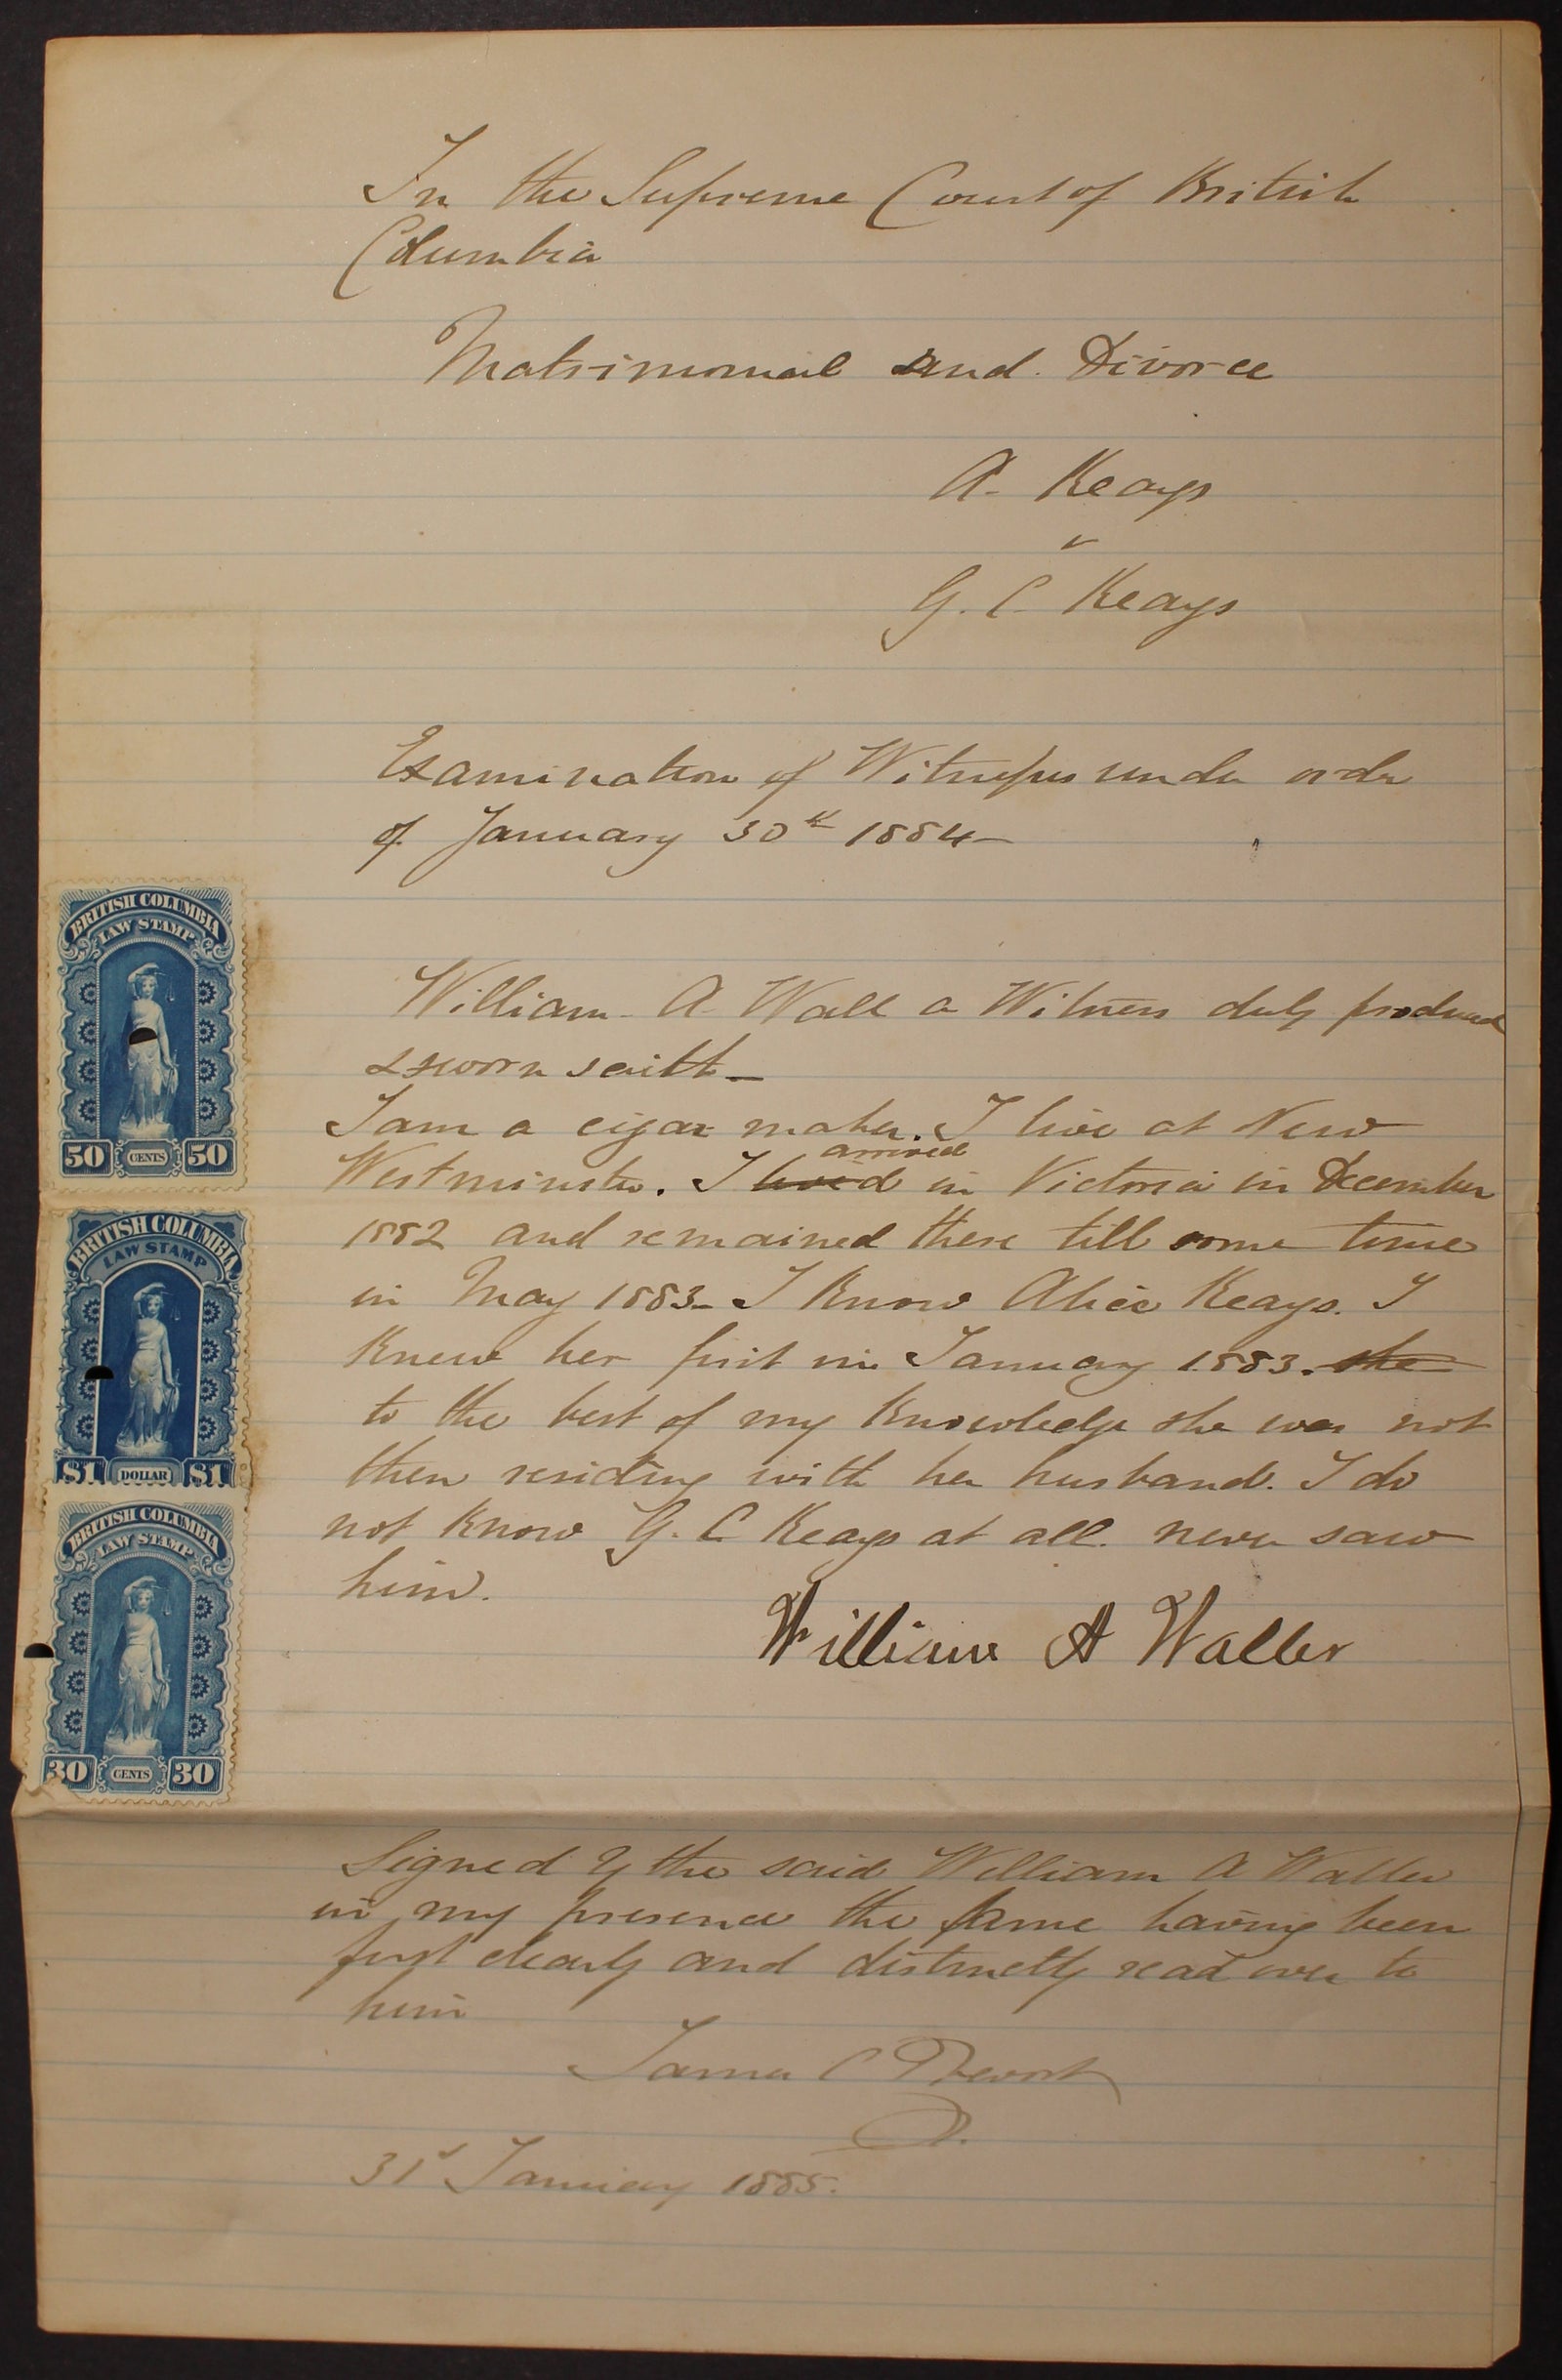 In the Supreme Court of British
Columbia
Matrimonial and Divorce
A. Keays
v
G. C. Keays
Examination of Witnesses under order
of January 30th 1884
William A. Wall a Witness duly produced
& sworn saith
I am a cigar maker. I live at New
arrived
Westminster. I lived in Victoria in December
1882 and remained there till some time
in May 1883 – I know Alice Keays. I
knew her first in January 1883. she
to the best of my knowledge she was not
then residing with her husband. I do
not know G. C Keays at all. never saw
him.
William A Waller
Signed by the said William A Waller
in my presence the same having been
first clearly and distinctly read over to
him
James C Prevost
31st January 1885.
BRITISH COLUMBIA
LAW STAMP
50 CENTS 50
BRITISH COLUMBIA
LAW STAMP
$1 DOLLAR $1
BRITISH COLUMBIA
LAW STAMP
30 CENTS 30